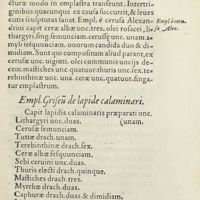 cturæ modo in emplastra transeunt. Intertri-
ginibus quacunque ex causa succurrit, & leues
cutis scalpturas sanat. Empl. è cerusa Alexan-
drini capit ceræ albæ unc. tres, olei rosacei, li-
thargyri, sing. semuncum. cerussę unc. unam. a-
myli sesquiunciam, ouorum candida duo & di-
midium. Sunt qui compositum aliud parant, ex
ceræ unc. uiginti, olei unc. decem, cerusæ unc.
decem, mastiches unc. quatuor. thuris unc. sex, te-
rebinthinæ unc. una. ceræ unc. quatuor. singa-
tur emplastrum.
Empl. è ceru-
sa Alex.
Empl. Griseū de lapide calaminari.
Capit lapidis calaminaris præparati unc.
Lithargyri unc. duas. (unam.
Cerusæ semunciam.
Tutiæ drach. unam.
Terebinthinæ drach. sex.
Ceræ albæ sesquunciam.
Sebi ceruini unc. duas.
Thuris electi drach. quinque.
Mastiches drach. tres.
Myrrhæ drach. duas.
Caphuræ drach. duas & dimidiam.